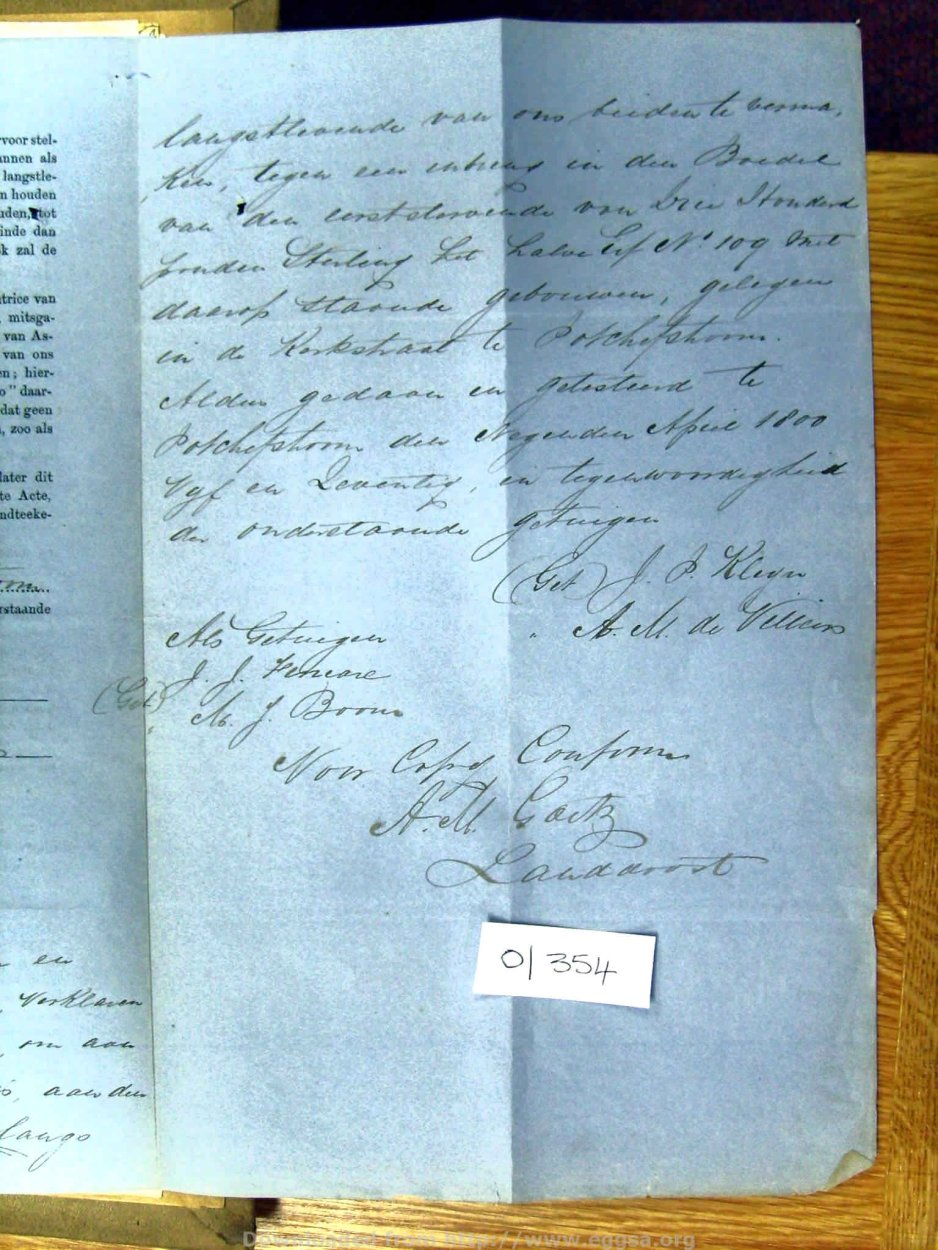 voor stel-
annen als
langstle-
n houden
uden, tot
inde dan
k zal de
trice van
, mitsga-
van As-
van ons
en; hier-
o" daar-
dat geen
, zoo als
later dit
te Acte,
ndteeke-
rstaande
en
Verklaren
om aan
aan den
langs
langstlevende van ons beiden te verma,
ken, tegen een inbreng in den Boedel
van den eerststervende van Drie Honderd
ponden Sterling het halve Erf No 109 met
daarop staande gebouwen, gelegen
in de Kerkstraat te Potchefstroom.
Aldus gedaan en getesteerd te
Potchefstroom den Negenden April 1800
Vyf en Zeventig, in tegenwoordigheid
der onderstaande getuigen
(Get) J. P. Kleyn
" A. M. de Villiers
Als Getuigen
(Get) J. J.
" M. J. Boons
Voor Copy Conform
A. M. Goetz
Landdrost
01 354
Downloaded from http://www.eggsa.org